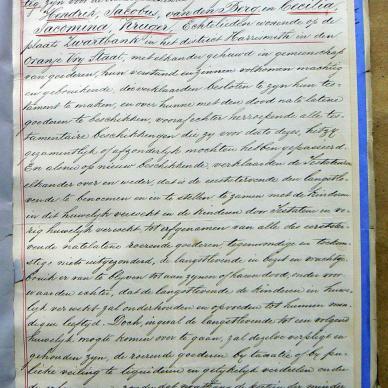 Hendrik, Jakobus, van den Berg, en Cecilia
Jacomina, Kreeger, Echtelieden wonende op de
plaats Zwartbank in het district Harrismith in den
Oranje Vry Staat, met elkander gehuwd in gemeenschap
van goederen, hun verstand en zinnen volkomen machtig
en gebruikende, die verklaarden besloten te zyn hun tes-
tament te maken, en over hunne met den dood na te latene
goederen te beschikken, vooraf echter herroepende alle tes-
tamentaire beschikkingen die zy voor date dezes, hetzy
gezamentlyk of afzonderlyk mochten hebben gepasseerd.
En alsnu op nieuw beschikkende, verklaarden de Testateuren
elkander over en weder, dat is de eerststervende den langstle-
vende te benoemen en in te stellen te zamen met de Kinderen
in dit huwelyk verwekt en de Kinderen door Testatrice in vo-
rig huwelyk verwekt tot erfgenamen van alle des eerststerv-
ende natelatene roerende goederen, tegenwoordige en toekom-
stige niets uitgezonderd, de langstlevende in bezit en vrucht-
gebruik er van te blyven tot aan zynen of haren dood, onder voor-
waarden echter, dat de langstlevende de Kinderen in huwe-
lyk verwekt zal onderhouden en opvoeden tot hunnen mon-
digen leeftyd. Doch, ingeval de langstlevende tot een volgend
huwelyk mogte komen over te gaan, zal dezelve verpligt en
gehouden zyn, de roerende goederen by taxatie of by pu-
blieke veiling te liquideeren en gelykelyk verdeelen onder